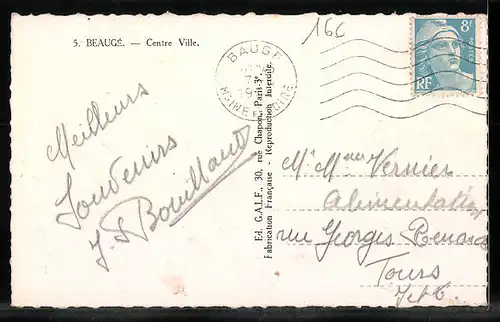 5. BEAUGÉ. — Centre Ville.
16c
BAUGÉ
MAINE ET LOIRE
8F
POSTES
RF
Meilleurs
Souvenirs
J. Bouillaud
Ed. G.A.L.F., 30, rue Chapon, Paris-3e.
Fabrication Française - Reproduction Interdite.
Mr Mme Vernier
Alimentation
rue Georges Renard
Tours
I et L.